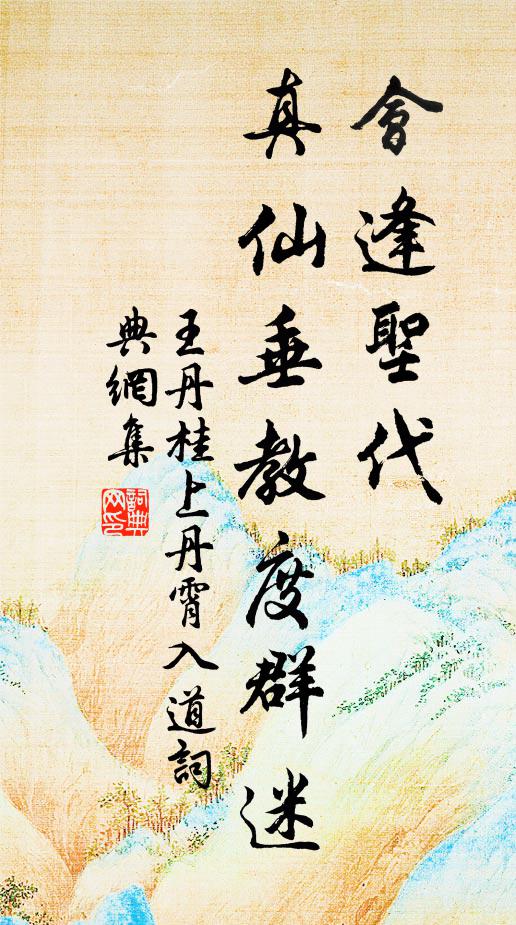 會逢聖代
真仙垂教度群迷
王丹桂上丹霄入道詞
典網集
詞典網印